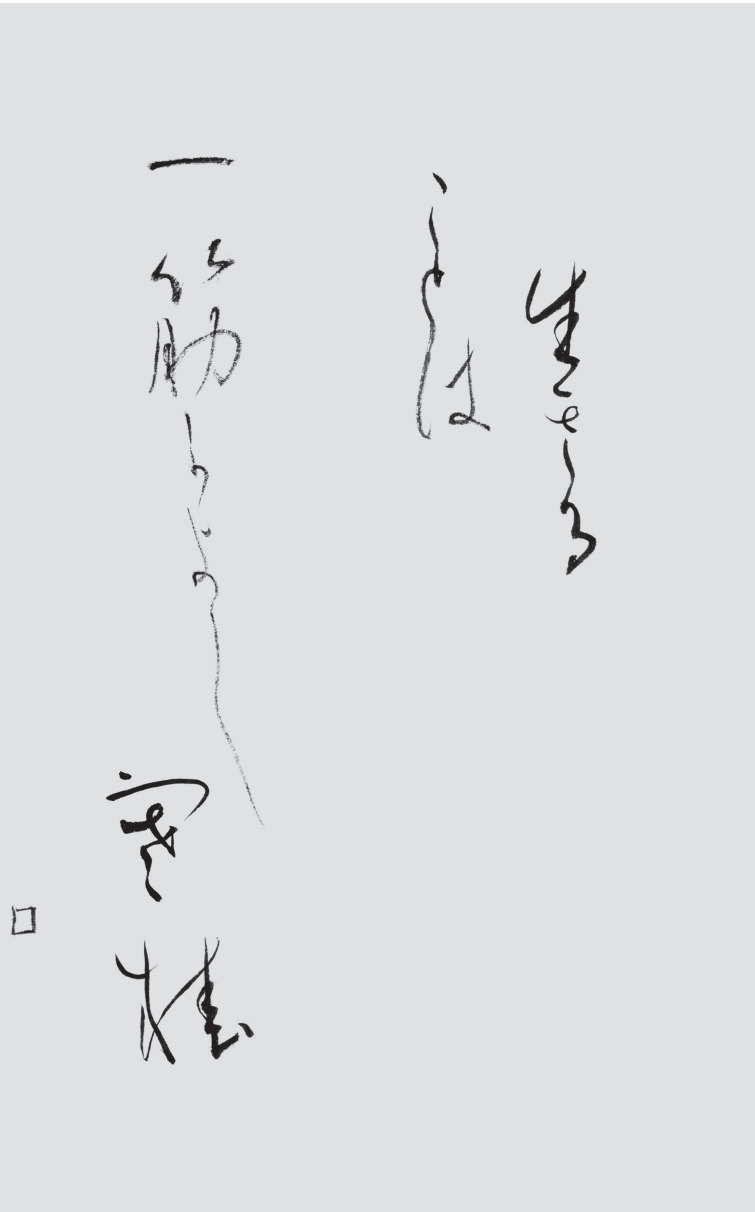 生きる
ことは
一筋かよし
寒椿